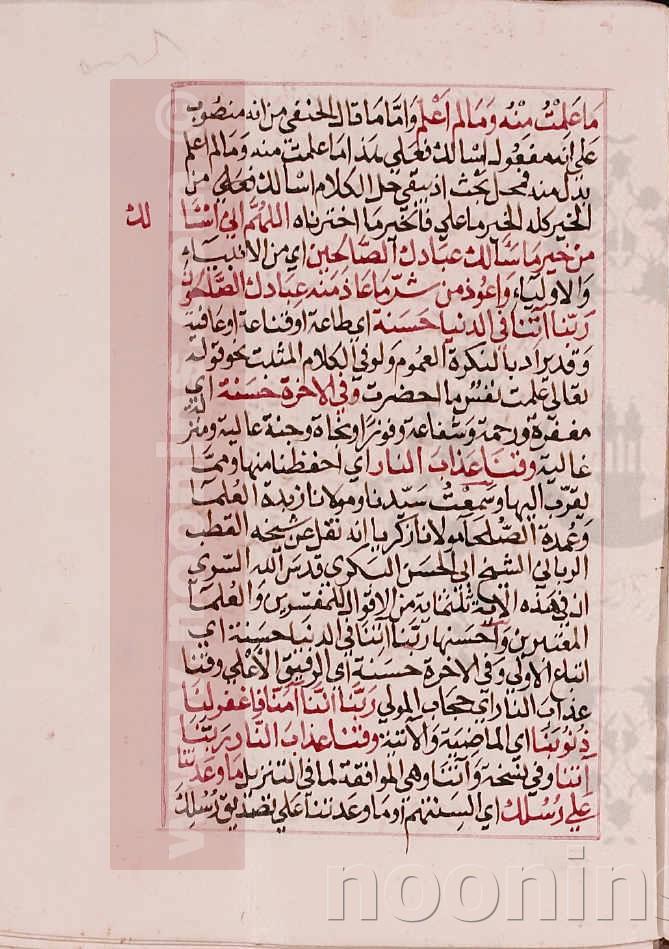 مَا عَلِمْتُ مِنْهُ وَمَا لَمْ اَعْلَمْ وَامَّا مَا قال الحنفي من انه منصوب
على انه مفعول اسالك فعلى هذا ما علمت منه وما لم اعلم
بدل منه فمحل بحث اذ يبقى حل الكلام اسالك فعلى من
الخير كله الخير ما على فالخير ما اخترناه اللهم انى اسٔا
لك
من خير ما سٔالك عبادك الصالحين اى من الانبيآء
والاوليآء واعوذ من شرّ ما عاذ منه عبادك الصّلحون
ربّنا اٰتنا فى الدنيا حَسَنة اى طاعة او قناعة او عافية
وقد يراد بالنكرة العموم ولو فى الكلام المثبت نحو قوله
تعالى علمت نفس ما احضرت وفى الاخرة حسنة اى
مغفرة ورحمة وشفاعة وفوزا ونجاة وجنة عالية ومنز
لة
غالية وقنا عذاب النار اى احفظنا منها ومما
يقرّب اليها وسمعت سيّدنا ومولانا زبدة العلمآ
وعمدة الصّلحآ مولانا زكريا انه نقل عن شيخه القطب
الربانى الشيخ ابى الحسن البكرى قدس الله السّرى
ان فى هذه الاية ثلثماية من الاقوال للمفسرين والعلمآ
المعتبرين واحسنها ربّنا اتنا فى الدنيا حسنة اى
اتباع الاولى وفى الاخرة حسنة اى الرفيق الاعلى وقنا
عذاب النار اى حجاب المولى ربّنا اننا اٰمنا فاغفر لنا
ذنوبنا اى الماضية والآتية وقنا عذاب النار ربّنا
اٰتنا وفى نسخة واٰتنا وهى الموافقة لما فى التنزيل ما وعدتنا
على رسلك اى السنتهم او ما وعدتنا على تصديق رسلك
www.noonin
noonin